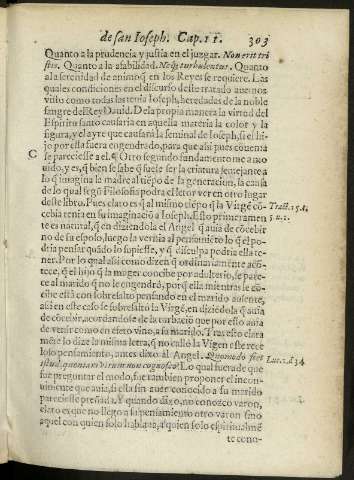 de san Ioseph. Cap. 11. 303
Quanto a la prudencia y justia en el juzgar. Non erit tri
stis. Quanto a la afabilidad. Neq; turbulentus. Quanto
a la serenidad de animo q̃ en los Reyes se requiere. Las
quales condiciones en el discurso deste tratado aue nos
visto como todas las tenia Ioseph, heredadas de la noble
sangre del Rey Dauid. De la propia manera la virtud del
Espiritu santo causaria en aquella materia la color y la
figura, y el ayre que causara la seminal de Ioseph, si el hi-
jo por ella fuera engendrado, para que assi pues couenia
C se pareciesse a el. ¶ Otro segundo fundamento me a mo
uido, y es, q̃ bien se sabe q̃ suele ser la criatura semejante a
lo q̃ imagina la madre al tiẽpo de la generacion, la causa
de lo qual segũ Filosofia podra el letor ver en otro lugar
deste libro. Pues claro es q̃ al mismo tiẽpo q̃ la Virgẽ cõ- Tract. 1. §. 4.
cebia tenia en su imaginaciõ a Ioseph. Esto primeramen 5. n. 2.
te es natural, q̃ en diziendola el Angel q̃ auia de cõcebir
no de su esposo, luego la vernia al pensamiẽto lo q̃ el po-
dria pensar quãdo lo supiesse, y q̃ disculpa podria ella te-
ner. Por lo qual assi como dizen q̃ ordinariamente acõ-
tece, q̃ el hijo q̃ la muger concibe por adulterio, se pare-
ce al marido q̃ no le engendró, porq̃ ella mientras le cõ-
cibe està con sobresalto pensando en el marido ausente,
assi en este caso se sobresaltò la Virgẽ, en diziẽdola q̃ auia
de cõcebir, acordandose de la turbaciõ que por esto auia
de venir como en efeto vino, a su marido. Tras esto clara
mẽte lo dize la misma letra, q̃ no callò la Virgen este rece
loso pensamiento, antes dixo al Angel. Quomodo fiet Luc. 1. d 34
istud, quoniam virum non cognosco? Lo qual fuera de que
fue preguntar el modo, fue tambien proponer el incon-
uiniente que auia, si ella sin auer conocido a su marido
pareciesse preñada. Y quando dixo, no conozco varon,
claro es que no llegò a su pensamiento otro varon sino
aquel con quien solo hablaua, a quien solo espiritualmẽ
te cono-